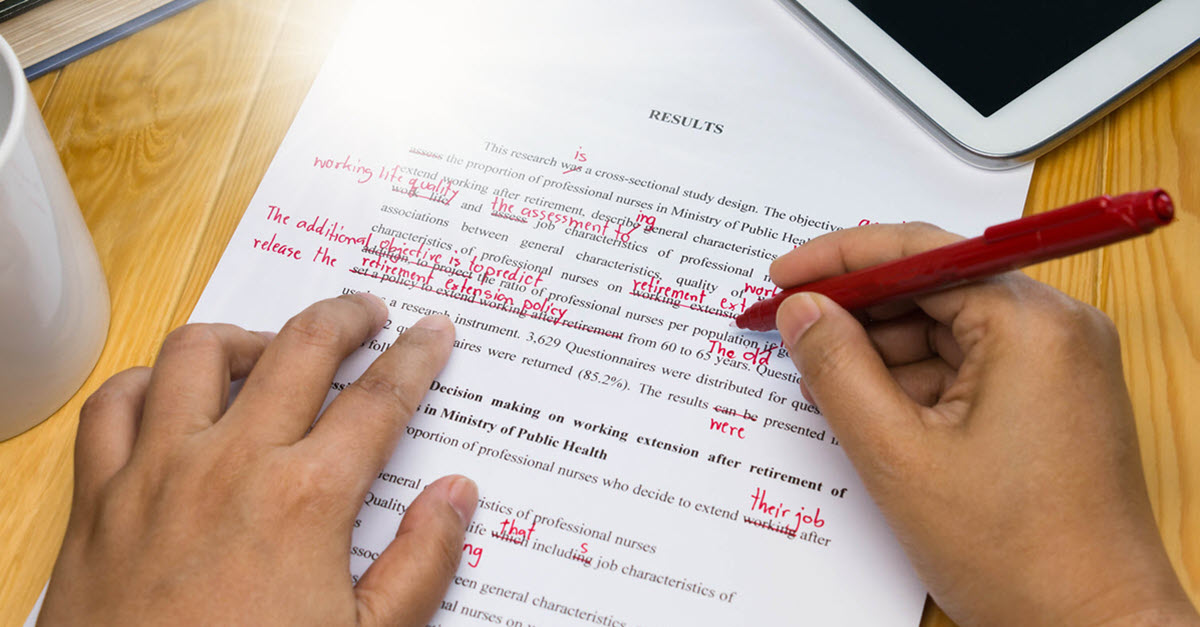 RESULTS
is
This research was a cross-sectional study design. The objective
working life quality
assess the proportion of professional nurses in Ministry of Public Hea
extend working after retirement, describe ing general characteristics
work life and assess the assessment to job characteristics of professional n
The additional objective is to predict
associations between general characteristics, quality of work
characteristics of professional nurses on working extension retirement ext
release the retirement extension policy
addition, to project the ratio of professional nurses per population
set a policy to extend working after retirement from 60 to 65 years. Questio
The old
as a research instrument. 3,629 Questionnaires were distributed for
aires were returned (85.2%). The results can be presented
were
Decision making on working extension after retirement of
in Ministry of Public Health
roportion of professional nurses who decide to extend working after
their job
eneral ristics of professional nurses
Quality ife which including job characteristics of
that s
ng
een general characteristics
nal nurses on